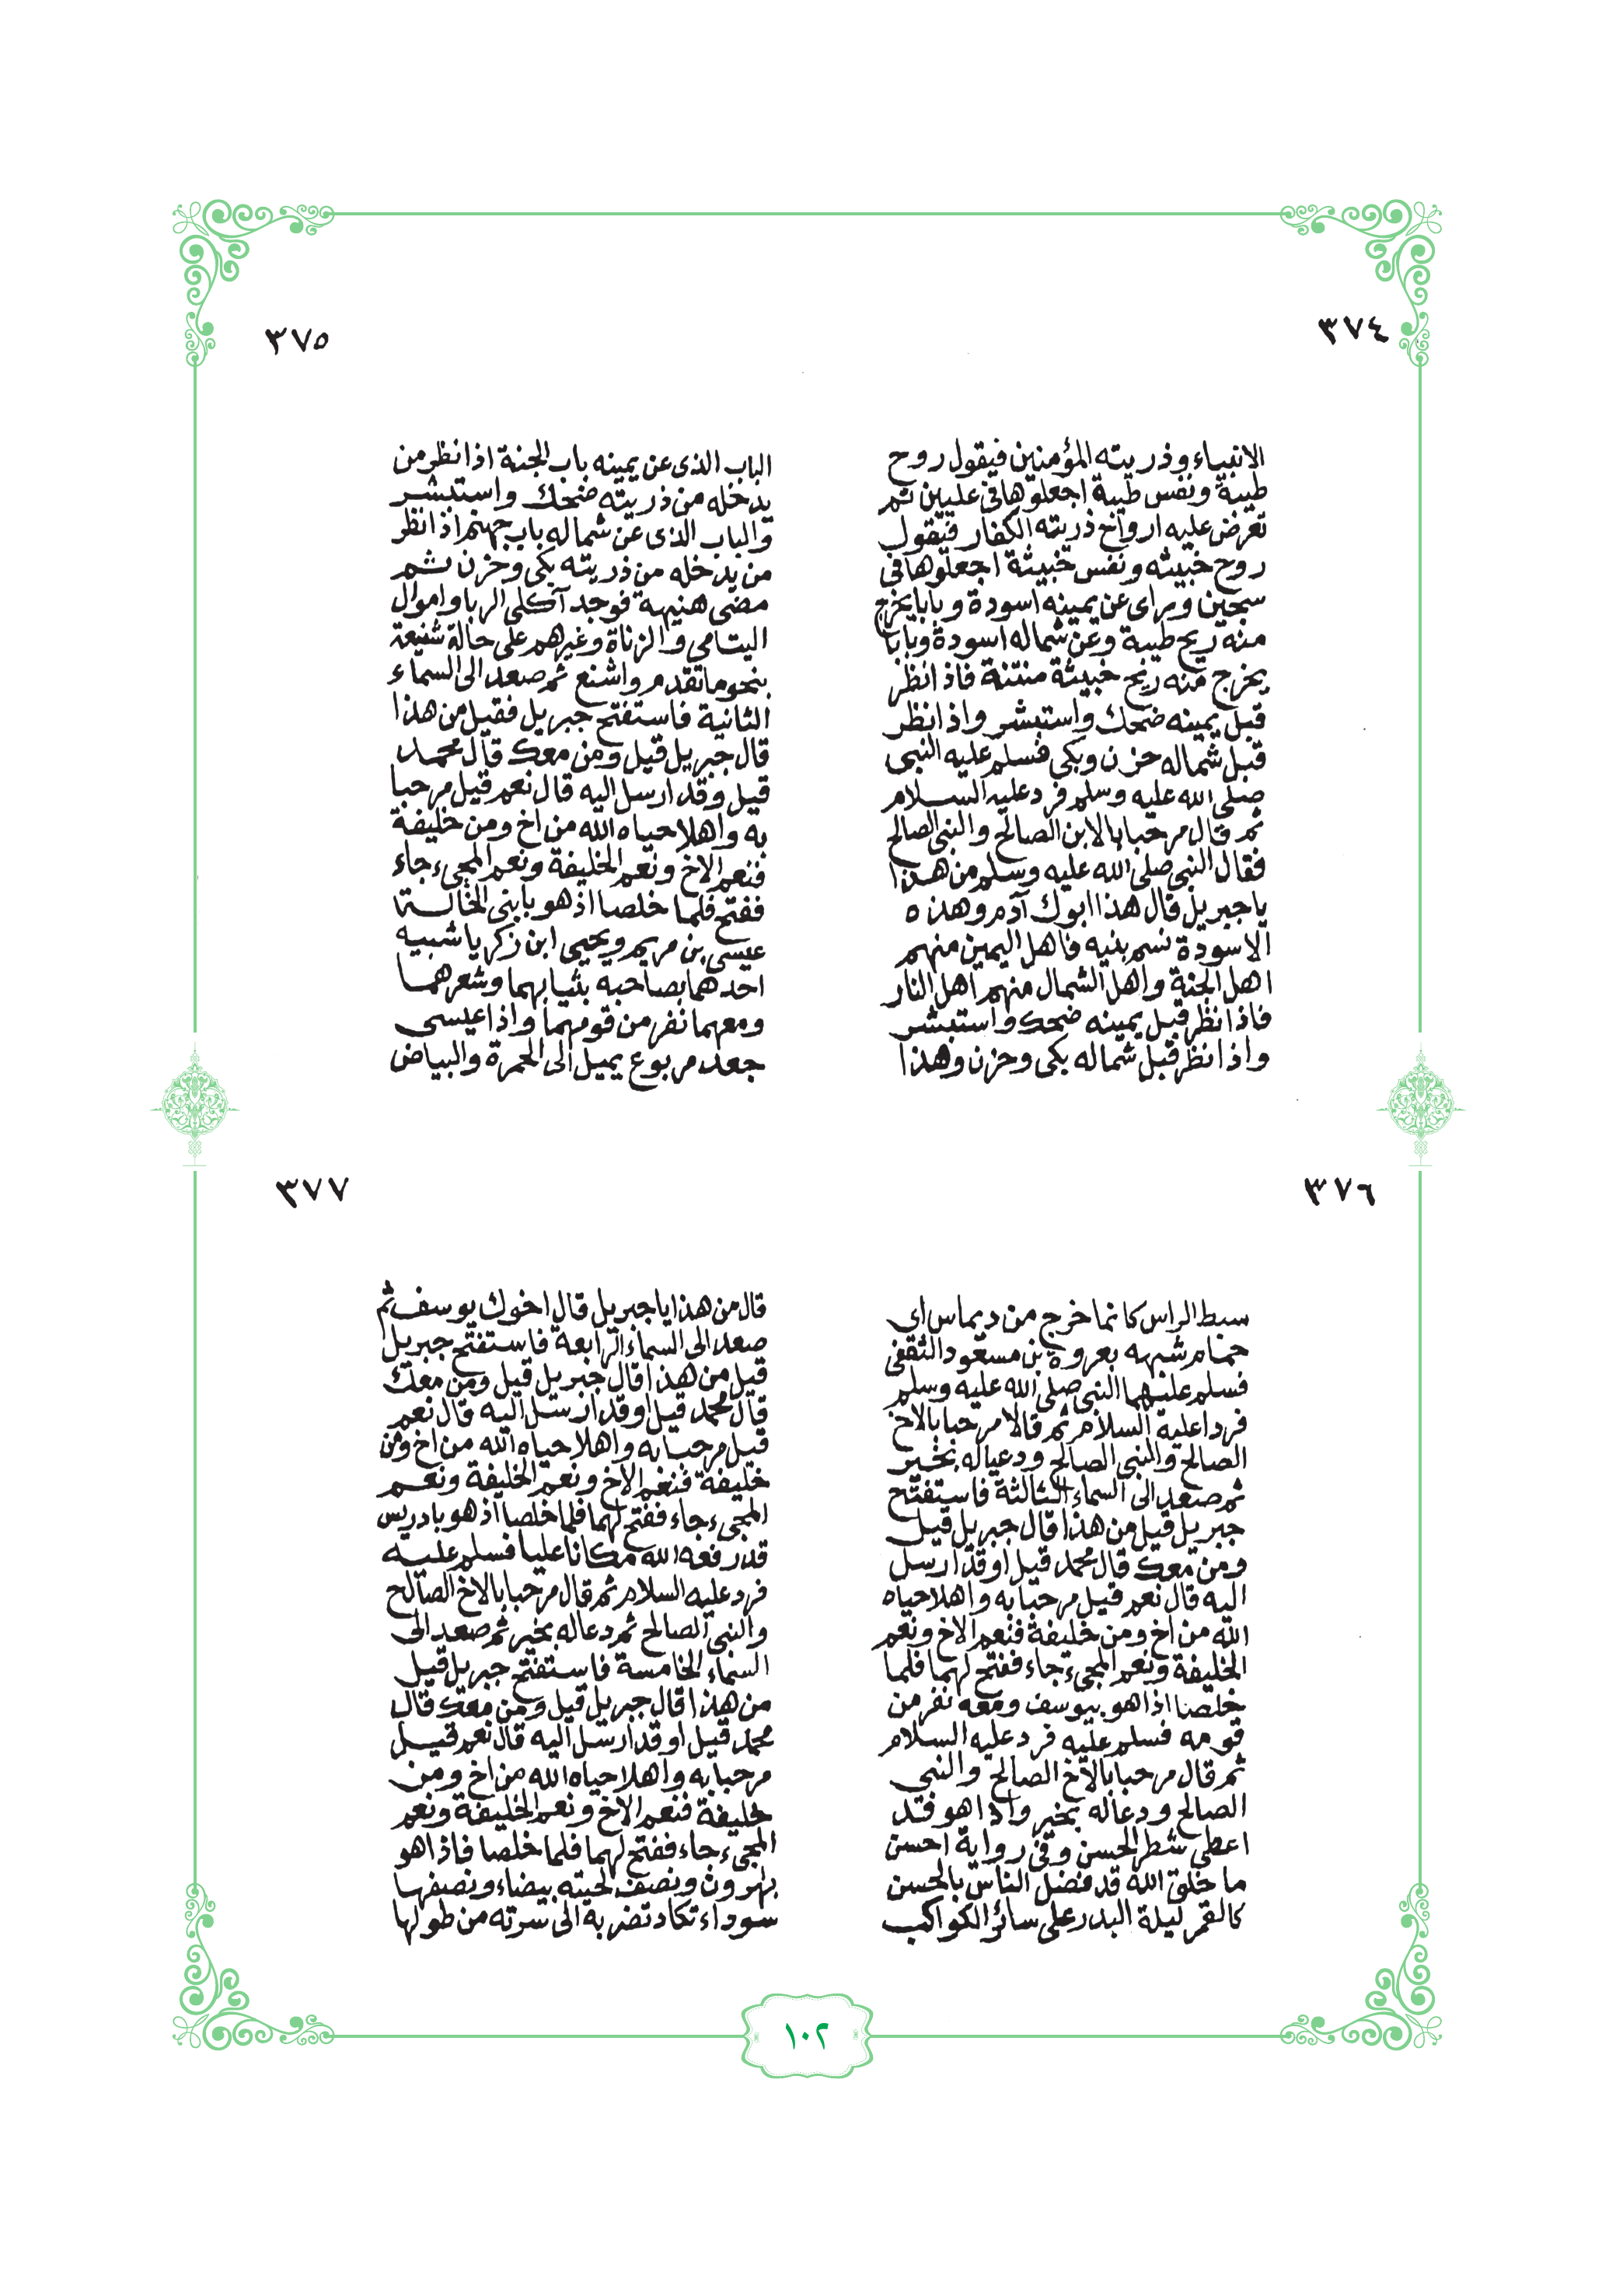 ٣٧٤
الانبياء وذريته المؤمنين فيقول روح
طيبة ونفس طيبة اجعلوها في عليين ثم
تعرض عليه ارواح ذريته الكفار فيقول
روح خبيثه ونفس خبيثة اجعلوها في
سجين ويراى عن يمينه اسودة وبابا يخرج
منه ريح طيبة وعن شماله اسودة وبابا
يخرج منه ريح خبيثة منتنة فاذا نظر
قبل يمينه ضحك واستبشر واذا نظر
قبل شماله حزن وبكى فسلم عليه النبى
صلى الله عليه وسلم فرد عليه السلام
ثم قال مرحبا بالابن الصالح والنبى الصالح
فقال النبى صلى الله عليه وسلم من هذا
يا جبريل قال هذا ابوك آدم وهذه
الاسودة نسم بنيه فاهل اليمين منهم
اهل الجنة واهل الشمال منهم اهل النار
فاذا نظر قبل يمينه ضحك واستبشر
واذا نظر قبل شماله بكى وحزن وهذا
٣٧٥
الباب الذى عن يمينه باب الجنة اذا نظر من
يدخله من ذريته ضحك واستبشر
والباب الذى عن شماله باب جهنم اذا نظر
من يدخله من ذريته بكى وحزن ثم
مضى هنيهة فوجد آكلى الربا واموال
اليتامى والزناة وغيرهم على حالة شنيعة
بنحو ما تقدم واشنع ثم صعد الى السماء
الثانية فاستفتح جبريل فقيل من هذا
قال جبريل قيل ومن معك قال محمد
قيل وقد ارسل اليه قال نعم قيل مرحبا
به واهلا حياه الله من اخ ومن خليفة
فنعم الاخ ونعم الخليفة ونعم المجىء جاء
ففتح فلما خلصا اذ هو بابنى الخالة
عيسى بن مريم ويحيى ابن زكريا شبيه
احدهما بصاحبه بثيابهما وشعرهما
ومعهما نفر من قومهما واذا عيسى
جعد مربوع يميل الى الحمرة والبياض
٣٧٦
سبط الراس كانما خرج من ديماس اى
حمام شبهه بعروة بن مسعود الثقفى
فسلم عليهما النبى صلى الله عليه وسلم
فردا عليه السلام ثم قالا مرحبا بالاخ
الصالح والنبى الصالح ودعيا له بخير
ثم صعد الى السماء الثالثة فاستفتح
جبريل قيل من هذا قال جبريل قيل
ومن معك قال محمد قيل او قد ارسل
اليه قال نعم قيل مرحبا به واهلا حياه
الله من اخ ومن خليفة فنعم الاخ ونعم
الخليفة ونعم المجىء جاء ففتح لهما فلما
خلصا اذا هو بيوسف ومعه نفر من
قومه فسلم عليه فرد عليه السلام
ثم قال مرحبا بالاخ الصالح والنبى
الصالح ودعا له بخير واذا هو قد
اعطى شطر الحسن وفى رواية احسن
ما خلق الله قد فضل الناس بالحسن
كالقمر ليلة البدر على سائر الكواكب
٣٧٧
قال من هذا يا جبريل قال اخوك يوسف ثم
صعد الى السماء الرابعة فاستفتح جبريل
قيل من هذا قال جبريل قيل ومن معك
قال محمد قيل او قد ارسل اليه قال نعم
قيل مرحبا به واهلا حياه الله من اخ ومن
خليفة فنعم الاخ ونعم الخليفة ونعم
المجىء جاء ففتح لهما فلما خلصا اذ هو بادريس
قد رفعه الله مكانا عليا فسلم عليه
فرد عليه السلام ثم قال مرحبا بالاخ الصالح
والنبى الصالح ثم دعا له بخير ثم صعد الى
السماء الخامسة فاستفتح جبريل قيل
من هذا قال جبريل قيل ومن معك قال
محمد قيل او قد ارسل اليه قال نعم قيل
مرحبا به واهلا حياه الله من اخ ومن
خليفة فنعم الاخ ونعم الخليفة ونعم
المجىء جاء ففتح لهما فلما خلصا فاذا هو
بهرون ونصف لحيته بيضاء ونصفها
سوداء تكاد تضرب الى سرته من طولها
١٠٢